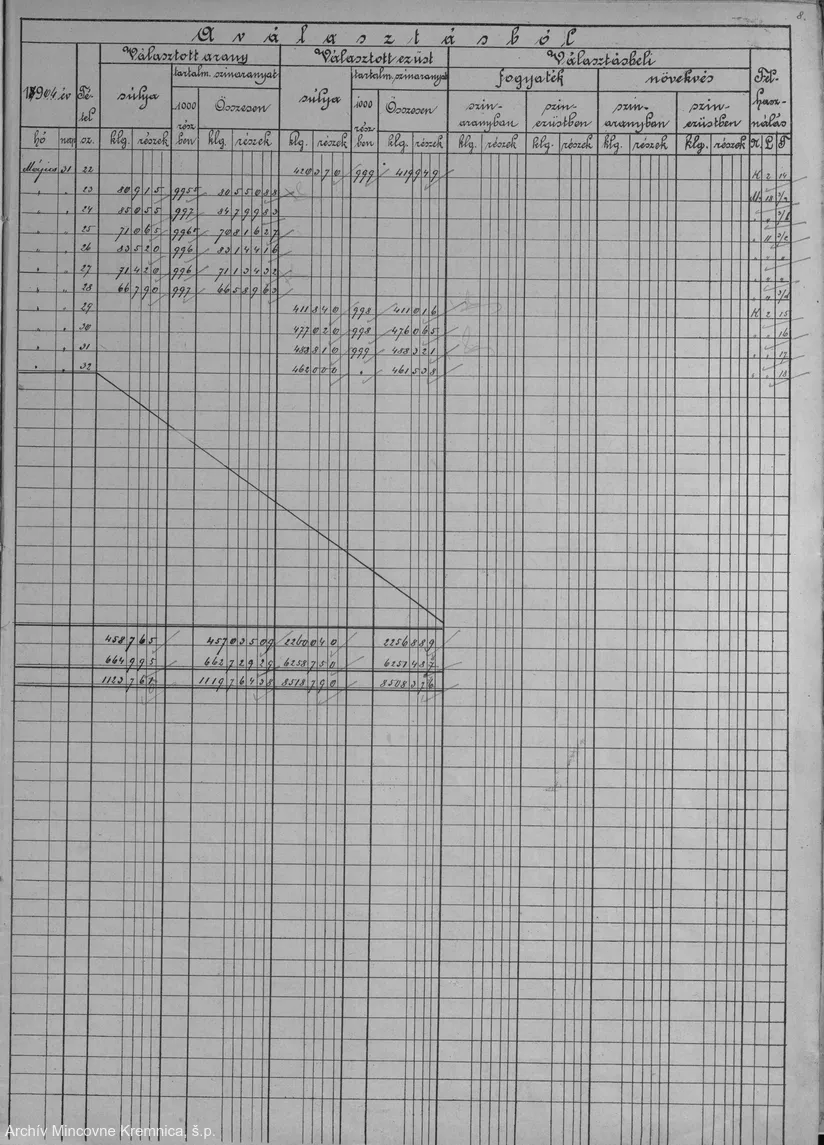 8.
A választásból
Választott arany Választott ezüst Választásbeli
1904 év Tétel sz. súlya tartalm. szinaranyat súlya tartalm. szinaranyat fogyaték növekvés Felhasználás
1000 részben Összesen 1000 részben Összesen szinaranyban szinezüstben szinaranyban szinezüstben
hó nap klg. részek klg. részek klg. részek klg. részek klg. részek klg. részek klg. részek klg. részek N. L. T
Május 31 22 420370 999 419949 K 2 14
" " 23 80915 9955 8055088 18
" " 24 85055 997 8479983
" " 25 71065 9965 7081627 11
" " 26 83520 996 8314416
" " 27 71420 996 7113432
" " 28 66790 997 6658963
" " 29 411840 998 411016 K 2 15
" " 30 477020 998 476065 " " 16
" " 31 488810 999 488321 " " 17
" " 32 462000 " 461538 " " 18
458765 45703509 2260040 2256889
664995 66272929 6258750 6251487
1123761 111976438 8518790 8508376
Archív Mincovne Kremnica, š.p.